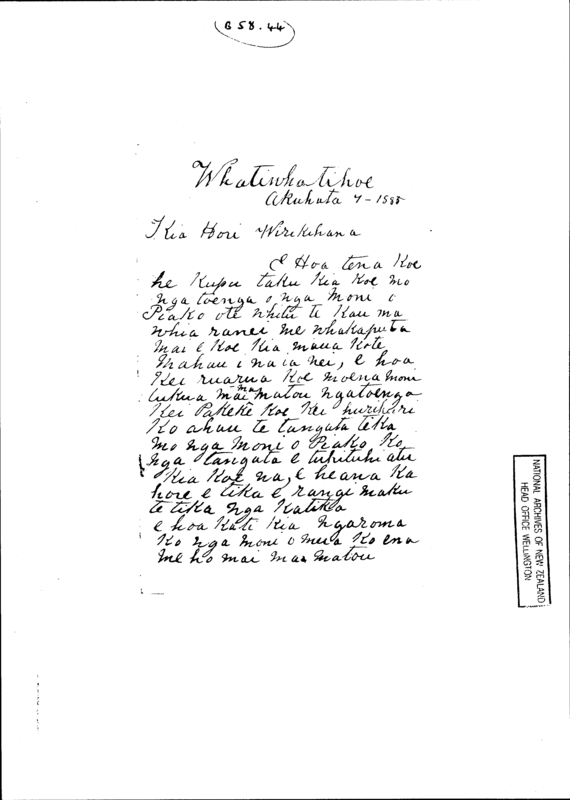 G 58.44
Whatiwhatihoe
Akuhata 7 - 1885
Kia Hori Wirikihana
E Hoa tena Koe
he Kupu taku Kia Koe mo
nga toenga o nga moni o
Piako ote whitu te Kau ma
whia ranei me whakaputa
mai e Koe Kia maua Kote
Mahau i na ia nei, e hoa
Kei ruarua Koe moena moni
tukua mai ma matou ngatoenga
Kei Pakeke Koe Kei hurihuri
Ko ahau te tangata tika
mo nga moni o Piako Ko
nga tangata e tuhituhi atu
Kia Koe na, e heana Ka
hore e tika e rangi maku
te tika nga Katika
e hoa Kati Kia ngaroma
Ko nga moni o mua Ko ena
me ho mai ma matou
NATIONAL ARCHIVES OF NEW ZEALAND
HEAD OFFICE WELLINGTON